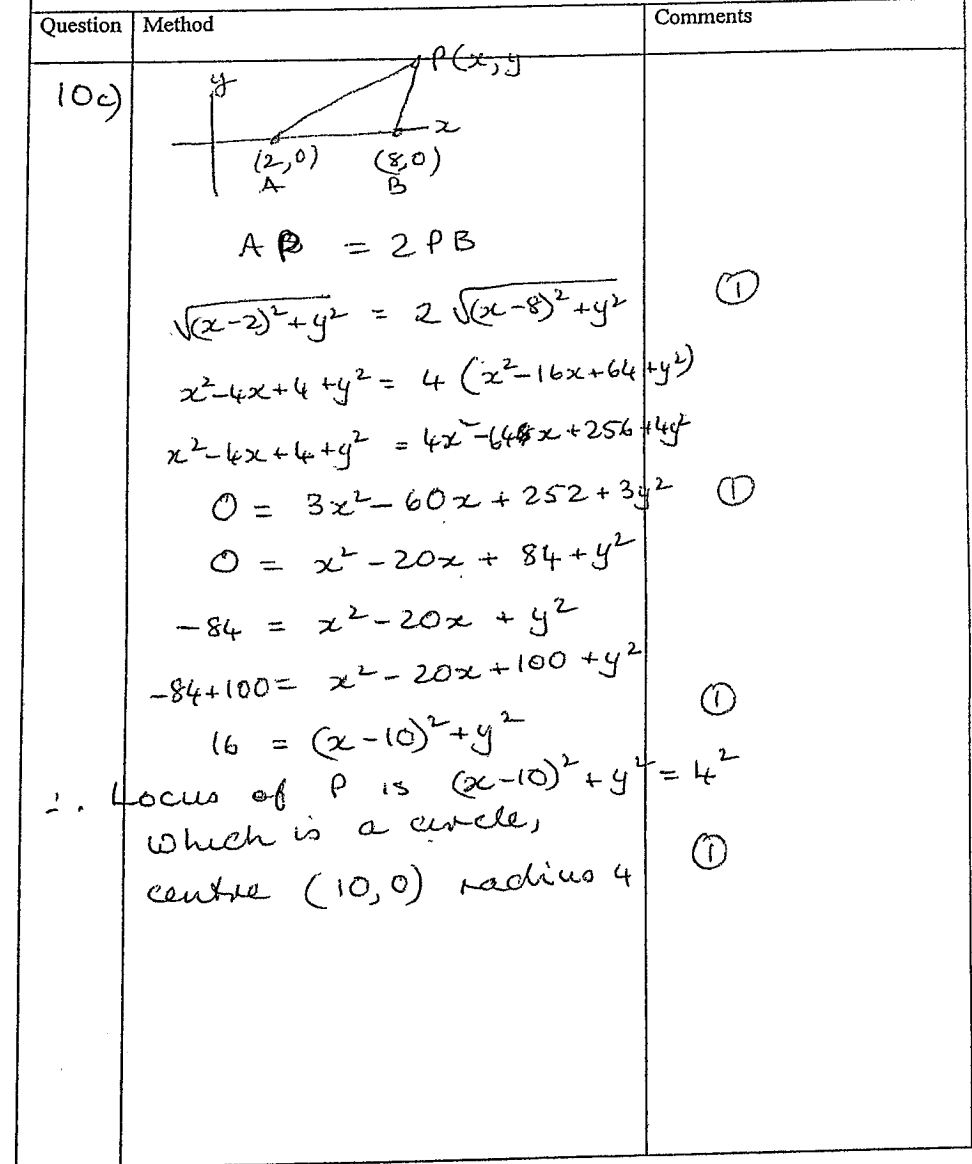 Question Method Comments
10c)
y
P(x, y
x
(2,0) (8,0)
A B
AP = 2PB
√(x-2)²+y² = 2 √(x-8)²+y² ①
x²-4x+4+y² = 4 (x²-16x+64+y²)
x²-4x+4+y² = 4x²-64x+256+4y²
0 = 3x²-60x+252+3y² ①
0 = x²-20x+84+y²
-84 = x²-20x+y²
-84+100= x²-20x+100+y²
16 = (x-10)²+y² ①
∴ Locus of P is (x-10)²+y² = 4²
which is a circle,
centre (10,0) radius 4 ①